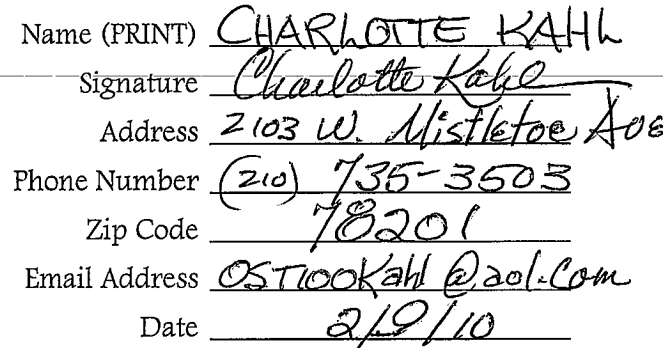 Name (PRINT) CHARLOTTE KAHL
Signature Charlotte Kahl
Address 2103 W. Mistletoe Ave
Phone Number (210) 735-3503
Zip Code 78201
Email Address OST100Kahl@aol.com
Date 2/9/10